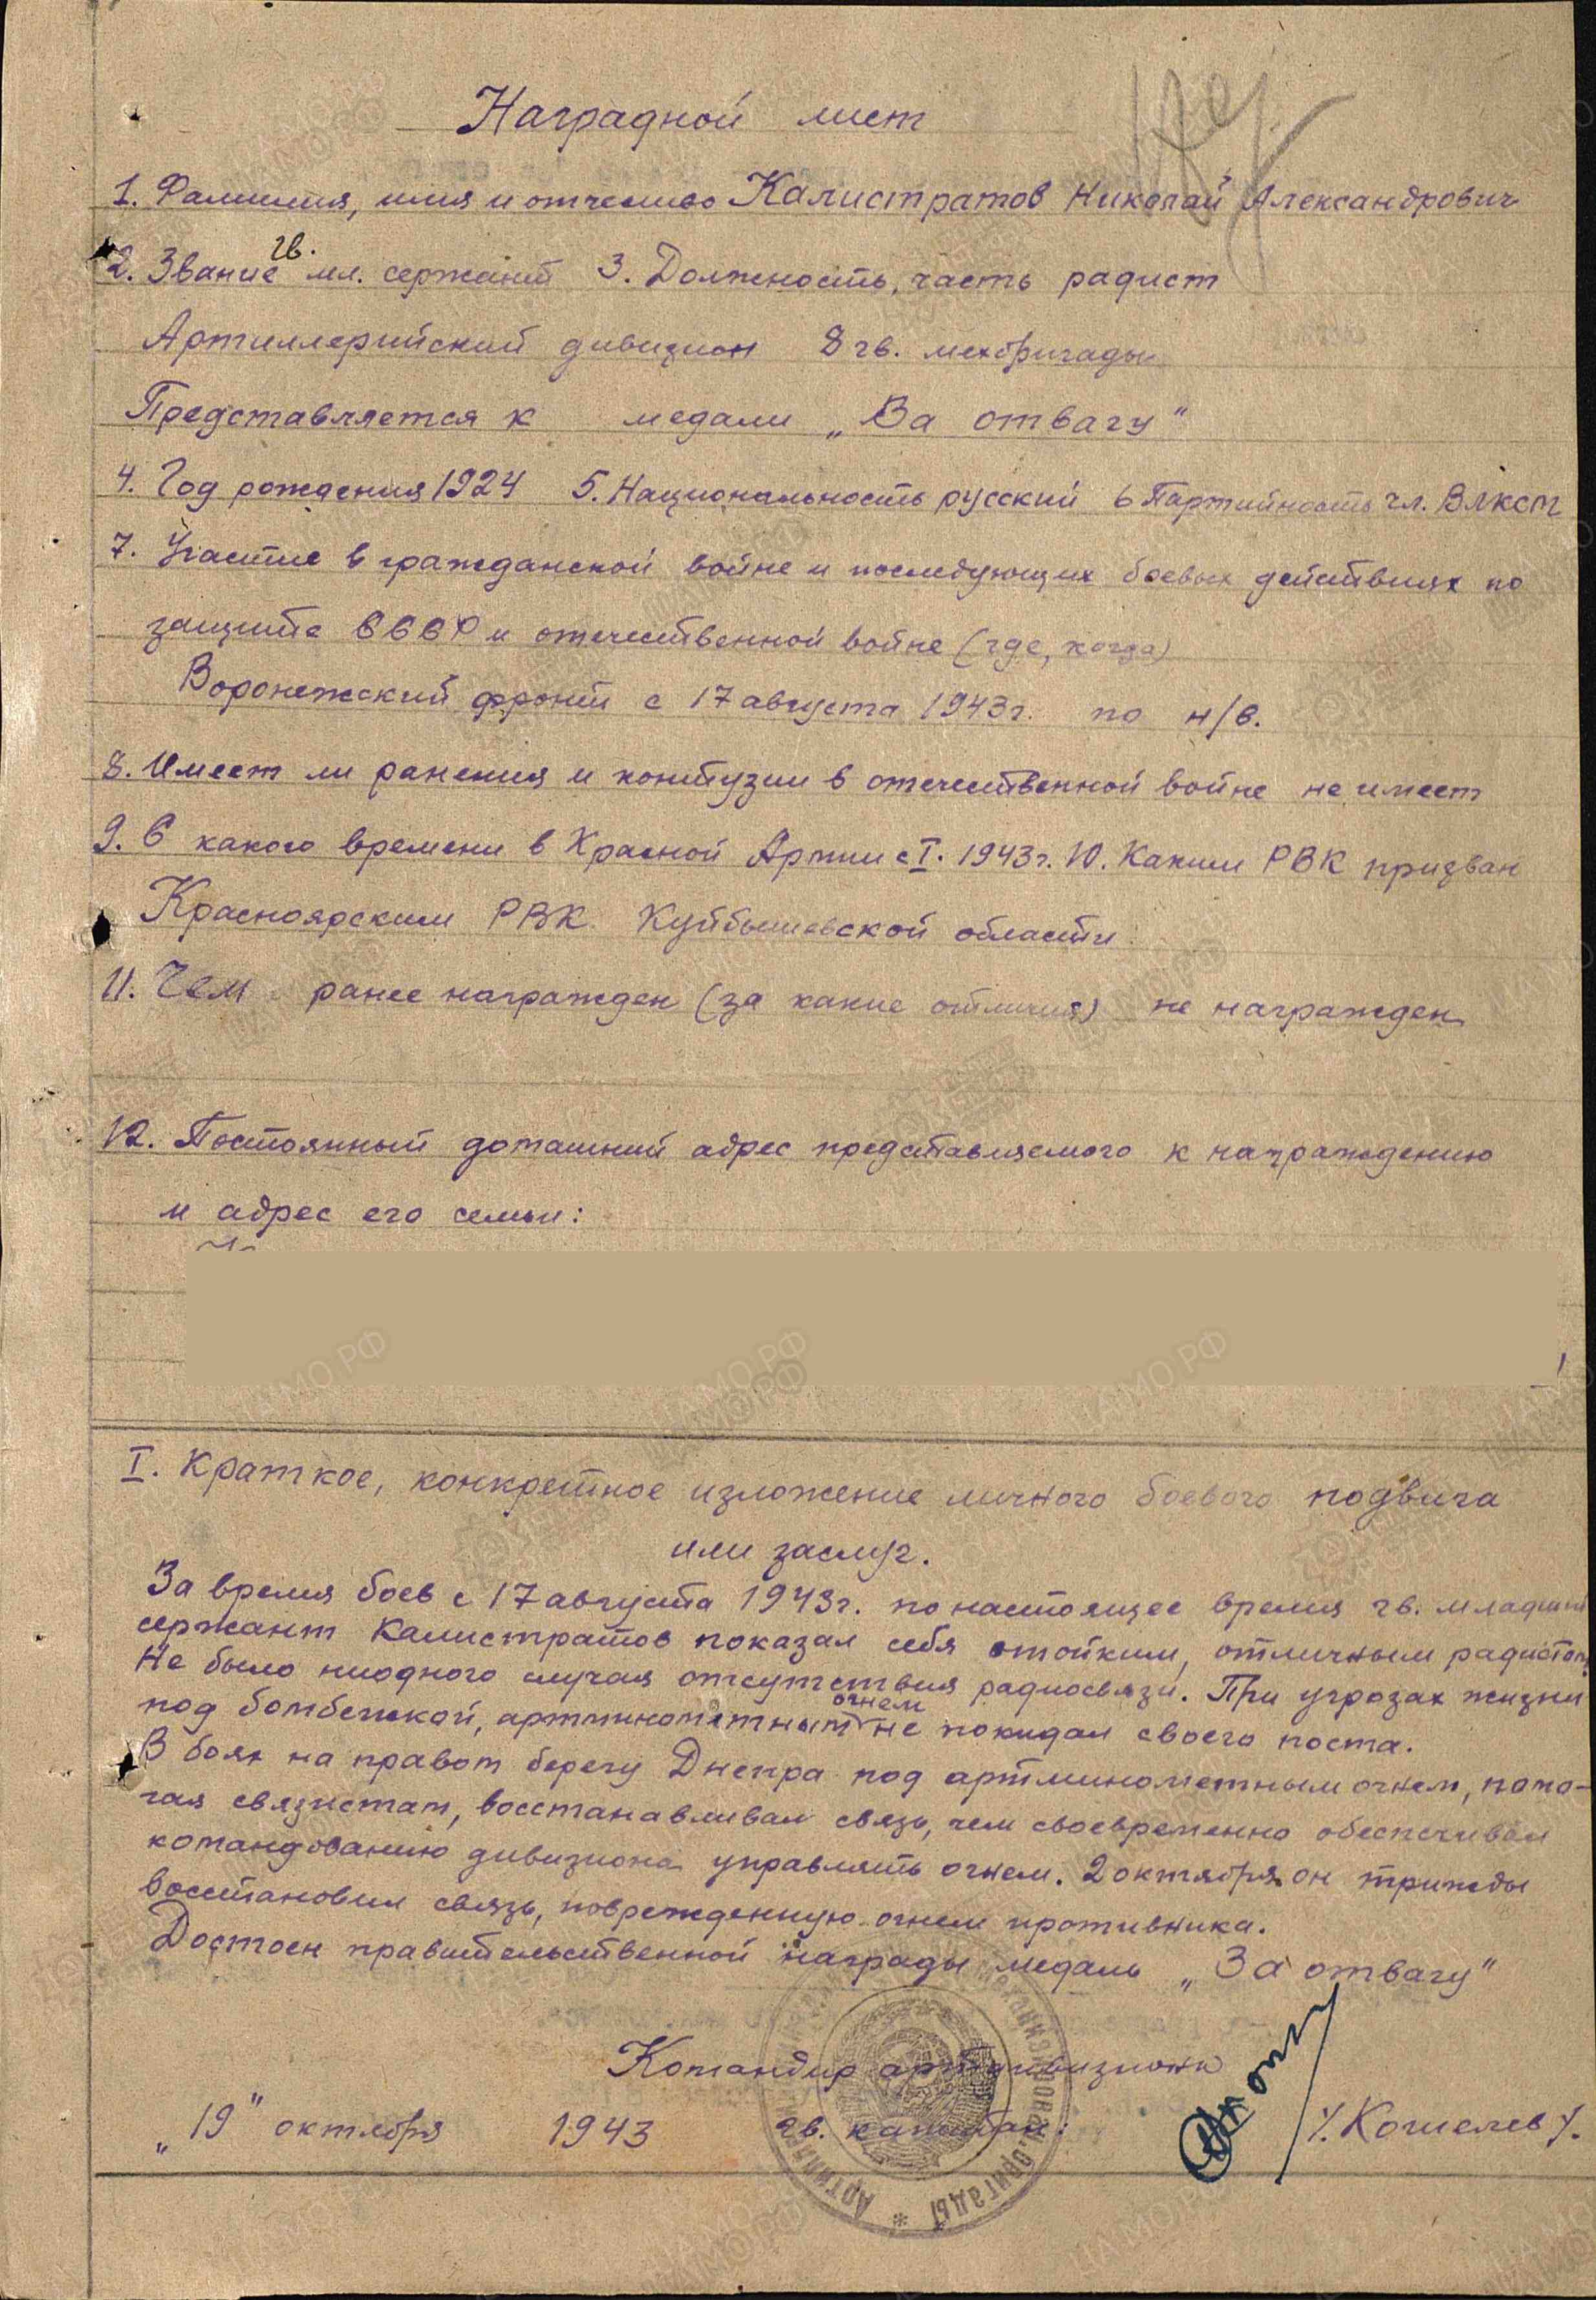 Наградной лист
1. Фамилия, имя и отчество Калистратов Николай Александрович
2. Звание гв. мл. сержант 3. Должность, часть радист
Артиллерийский дивизион 8 гв. мехбригады
Представляется к медали „За отвагу"
4. Год рождения 1924 5. Национальность русский 6 Партийность чл. ВЛКСМ
7. Участие в гражданской войне и последующих боевых действиях по
защите СССР и отечественной войне (где, когда)
Воронежский фронт с 17 августа 1943 г. по н/в.
8. Имеет ли ранения и контузии в отечественной войне не имеет
9. С какого времени в Красной Армии с I. 1943 г. 10. Каким РВК призван
Красноярским РВК Куйбышевской области
11. Чем ранее награжден (за какие отличия) не награжден
12. Постоянный домашний адрес представляемого к награждению
и адрес его семьи:
I. Краткое, конкретное изложение личного боевого подвига
или заслуг.
За время боев с 17 августа 1943 г. по настоящее время гв. младший
сержант Калистратов показал себя стойким, отличным радистом
Не было ниодного случая отсутствия радиосвязи. При угрозах жизни
под бомбежкой, артминометным огнем не покидал своего поста.
В боях на правом берегу Днепра под артминометным огнем, помо-
гая связистам, восстанавливал связь, чем своевременно обеспечивал
командованию дивизиона управлять огнем. 2 октября он трижды
восстановил связь, поврежденную огнем противника.
Достоен правительственной награды медаль „За отвагу"
Командир артдивизиона
„19" октября 1943 гв. капитан: /. Кошелев /.